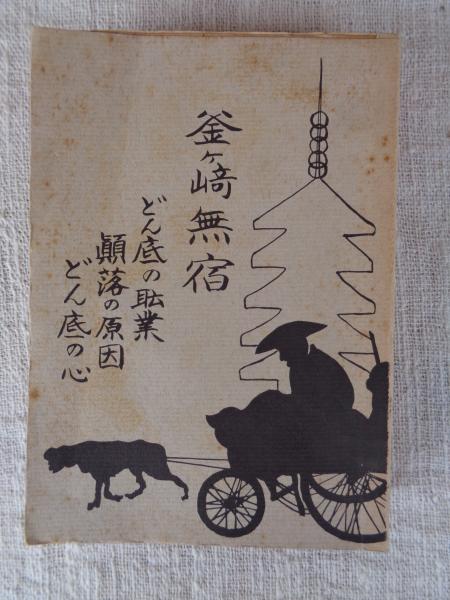 釜ヶ崎無宿
どん底の耺業
顛落の原因
どん底の心